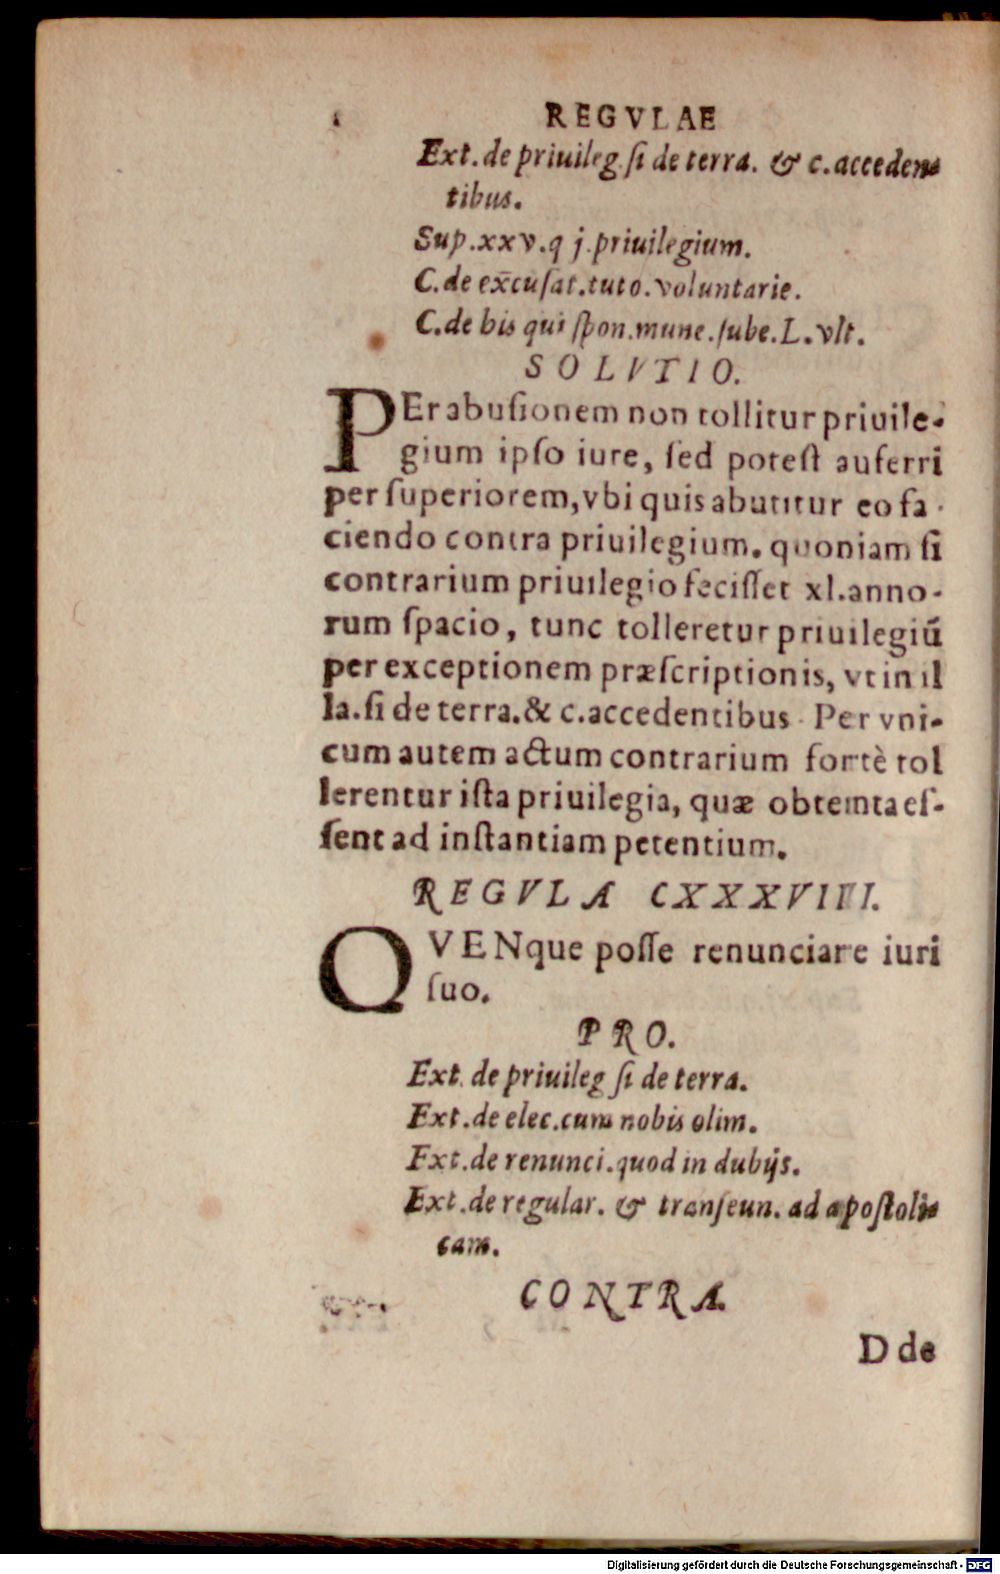 REGVLAE
Ext. de priuileg. ſi de terra. & c. acceden-
tibus.
Sup. xxv. q j. priuilegium.
C. de ex̄cuſat. tuto. voluntarie.
C. de bis qui ſpon. mune. ſube. L. vlt.
SOLVTIO.
PEr abuſionem non tollitur priuile-
gium ipſo iure, ſed poteſt auferri
per ſuperiorem, vbi quis abutitur eo fa-
ciendo contra priuilegium. quoniam ſi
contrarium priuilegio feciſſet xl. anno-
rum ſpacio, tunc tolleretur priuilegiū
per exceptionem præſcriptionis, vt in il
la. ſi de terra. & c. accedentibus. Per vni-
cum autem actum contrarium fortè tol
lerentur iſta priuilegia, quæ obtenta eſ-
ſent ad inſtantiam petentium.
REGVLA CXXXVIII.
QVENque poſſe renunciare iuri
ſuo.
PRO.
Ext. de priuileg ſi de terra.
Ext. de elec. cum nobis olim.
Ext. de renunci. quod in dubijs.
Ext. de regular. & tranſeun. ad apoſtoli-
cam.
CONTRA.
D de
Digitalisierung gefördert durch die Deutsche Forschungsgemeinschaft - DFG